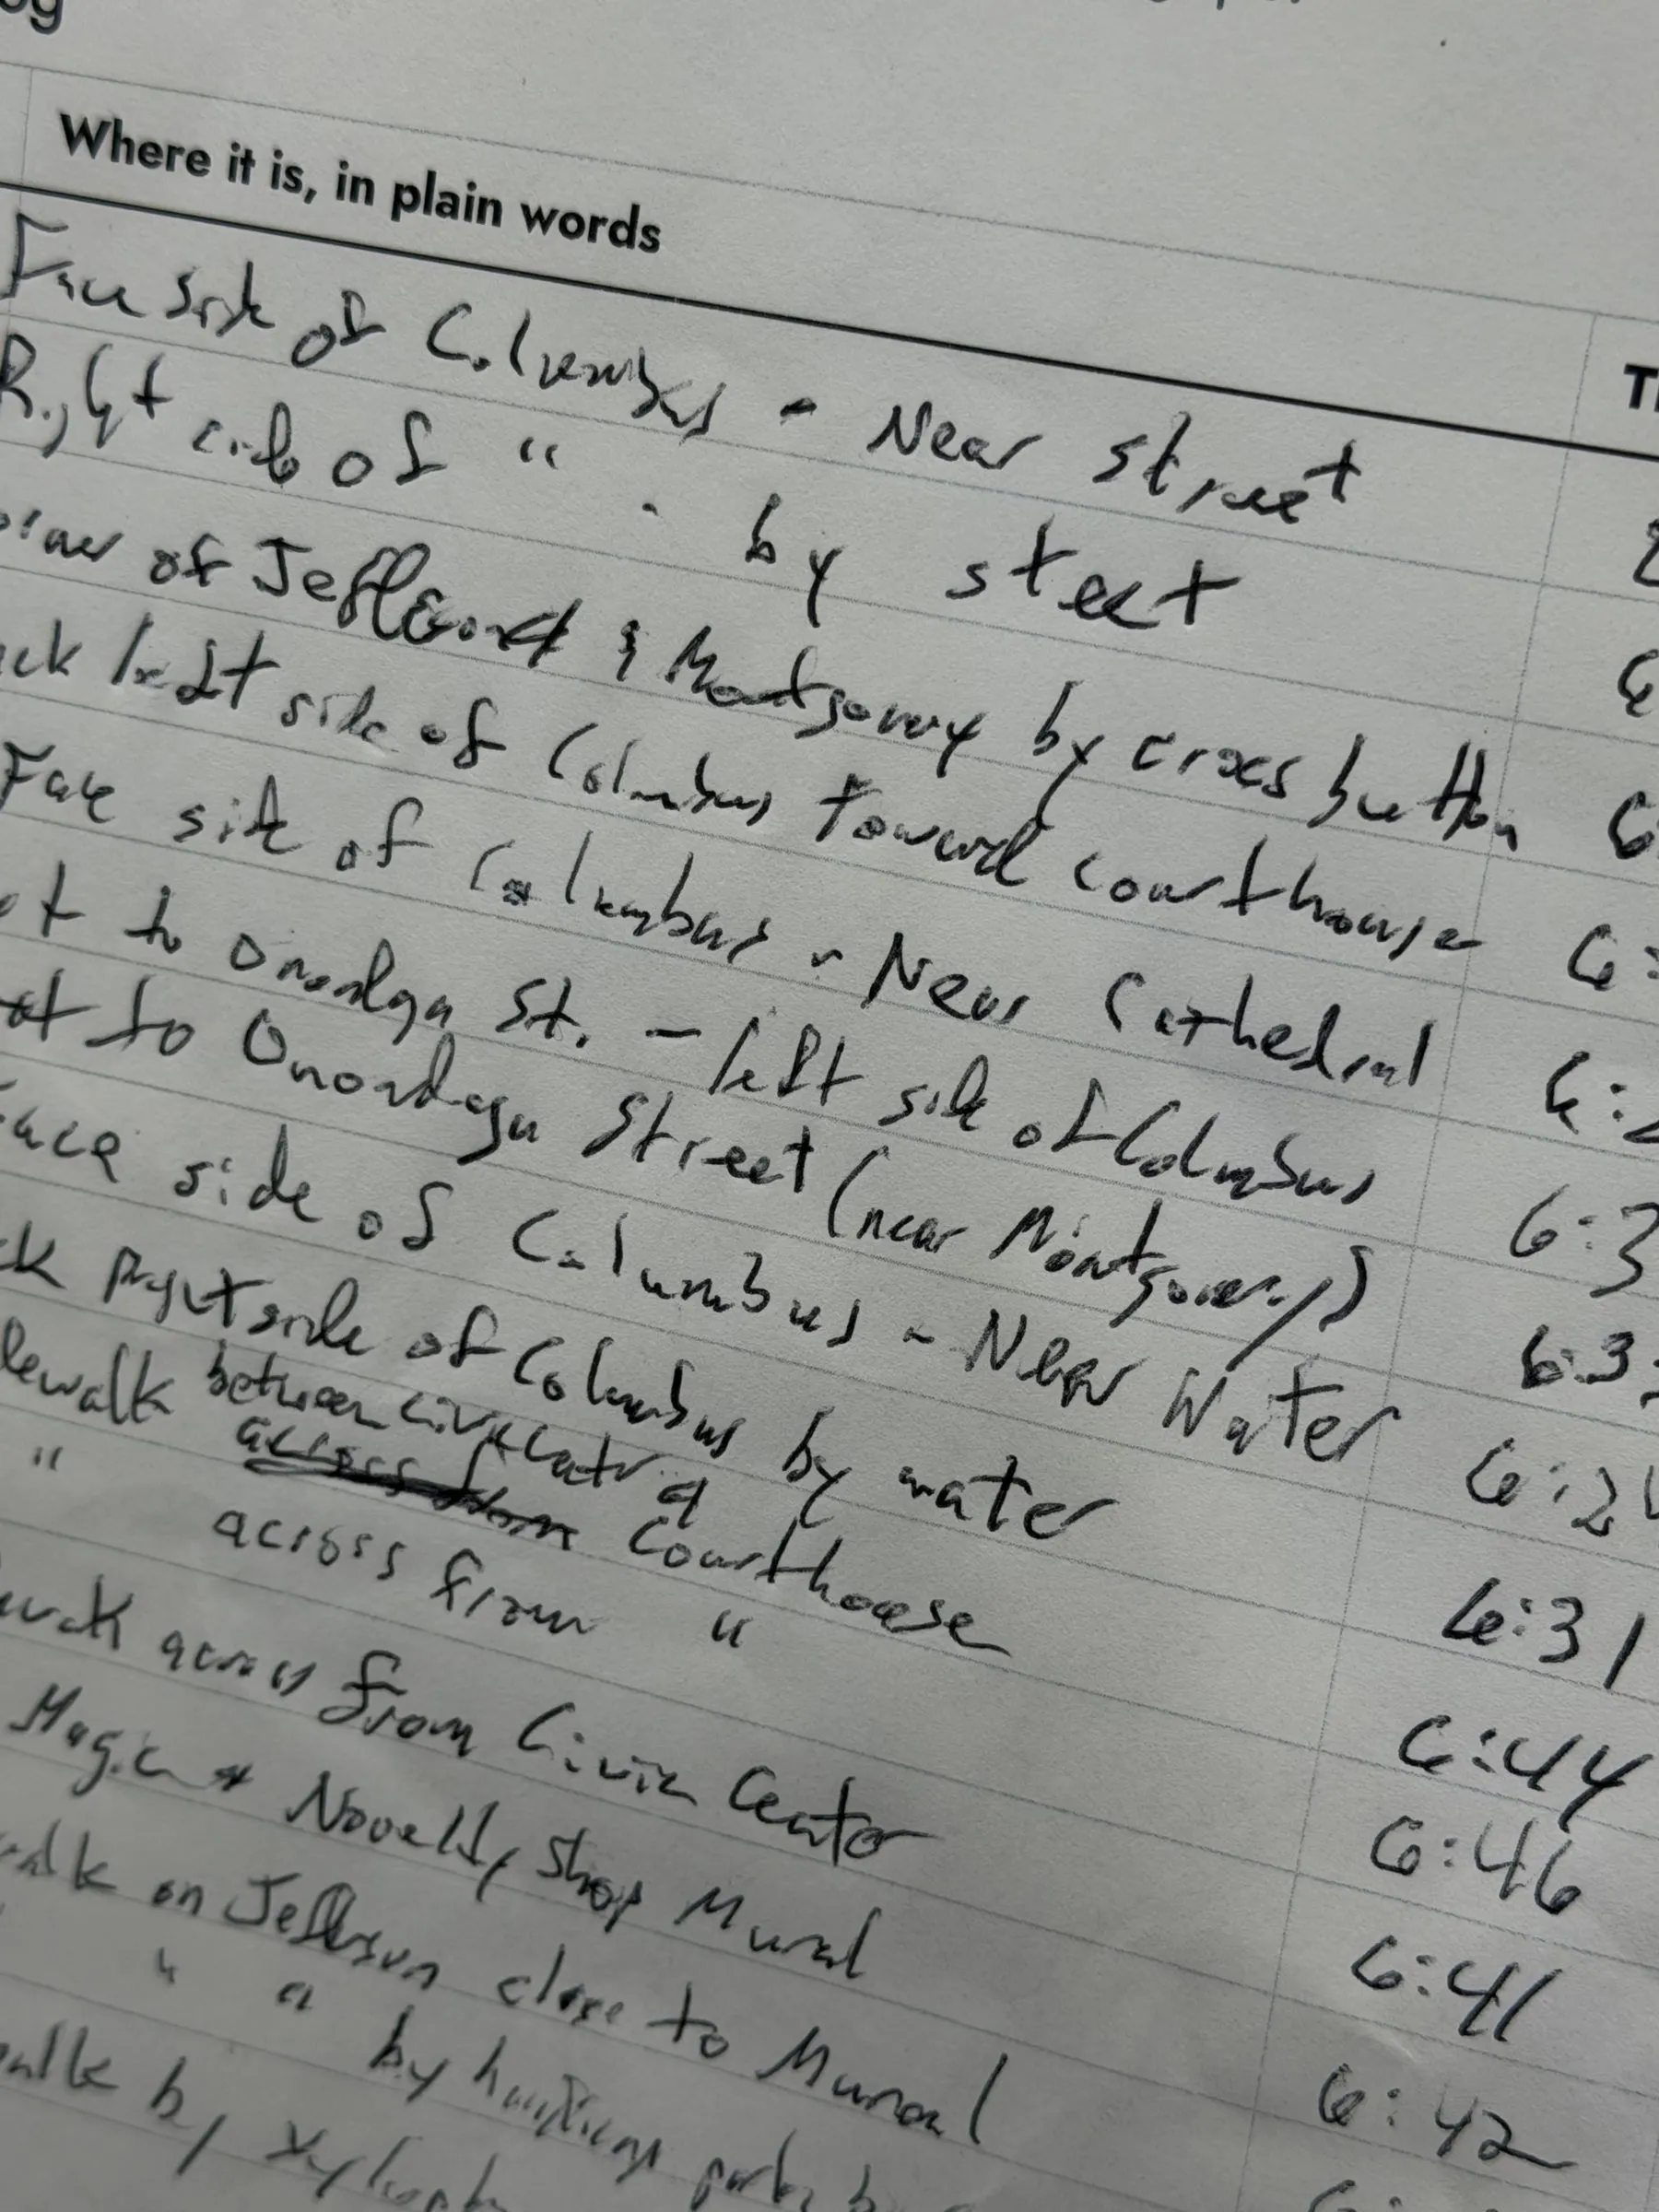 og
Where it is, in plain words
Th
Face side of Columbus - Near street
Right side of " - by street
of Jefferson & Montgomery by cross button
ck left side of Columbus toward courthouse
Face side of Columbus - Near Cathedral
to Onondaga St. - left side of Columbus
to Onondaga Street (near Montgomery)
Face side of Columbus - Near Water
ck Right side of Columbus by water
dewalk between Civic Center &
across from Courthouse
" across from "
across from Civic Center
Magic & Novelty Shop Mural
walk on Jefferson close to Mural
" " by
walk by
6:3
6:3
6:2
6:31
6:44
6:46
6:41
6:42